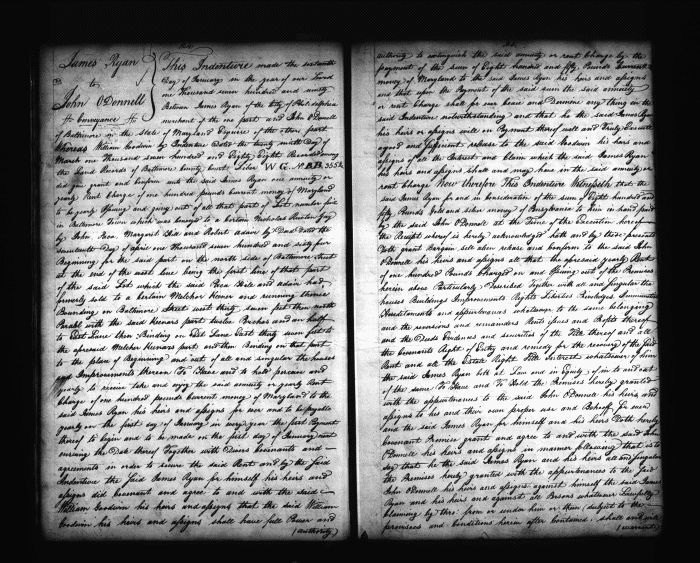 James Ryan
to
John O'Donnell
Conveyance
This Indenture made the sixteenth
Day of January in the year of our Lord
one Thousand seven hundred and ninety
Between James Ryan of the City of Philadelphia
merchant of the one part and John O'Donnell
of Baltimore in the State of Maryland Esquire of the other part
Whereas William Goodwin by Indenture Dated the twenty ninth Day of
March one Thousand seven hundred and Eighty Eight Recorded among
the Land Records of Baltimore County Court Liber W G
did give grant and confirm unto the said James Ryan one annuity or
yearly Rent Charge of one hundred pounds Current money of Maryland
to be yearly Issuing and going out of all that part of Lot number five
in Baltimore Town which was conveyed to a certain Nicholas
by John Margaret and Robert Adair by Deed Dated the
seventeenth Day of april one Thousand seven hundred and sixty four
Beginning for the said part on the north side of Baltimore street
at the end of the west line being the first line of that part
of the said Lot which the said and adair had
formerly sold to a certain Melchor Keener and running thence
Bounding on Baltimore Street west thirty seven feet then north
Parallel with the said Keeners part twelve Perches and an half
to East Lane then Binding on East Lane East thirty seven feet to
the aforesaid Melchor Keeners part and then Bounding on that part
to the place of Beginning and out of all and singular the houses
and Improvements thereon To Have and to hold perceive and
yearly to receive take and enjoy the said annuity or yearly Rent
Charge of one hundred pounds Current money of Maryland to the
said James Ryan his heirs and assigns for ever and to be payable
yearly on the first day of January in every year the first Payment
thereof to begin and to be made on the first day of January next
ensuing the Date thereof Together with Divers Covenants and
agreements in order to secure the said Rent and by the said
Indenture the said James Ryan for himself his heirs and
assigns did Covenant and agree to and with the said
William Goodwin his heirs and assigns that the said William
Goodwin his heirs and assigns shall have full Power and
(authority)
authority to extinguish the said annuity or rent Charge by the
payment of the sum of Eight hundred and fifty Pounds Current
money of Maryland to the said James Ryan his heirs and assigns
and that upon the Payment of the said sum the said annuity
or rent Charge shall for ever Cease and Determine any thing in the
said Indenture notwithstanding and that he the said James Ryan
his heirs or assigns will on Payment thereof well and truly Execute
a good and sufficient release to the said Goodwin his heirs and
assigns of all the Interest and Claim which the said James Ryan
his heirs and assigns shall and may have in the said annuity or
rent Charge Now therefore This Indenture Witnesseth that the
said James Ryan for and in Consideration of the sum of Eight hundred and
fifty Pounds Gold and silver money of Pensylvania to him in hand paid
by the said John O'Donnell at the Time of the Execution hereof
the Receipt whereof is hereby acknowledged hath and by these presents
Doth grant Bargain sell alien release and confirm to the said John
O'Donnell his Heirs and assigns all that the aforesaid yearly Rent
of one hundred Pounds Charged on and Issuing out of the Premises
herein above Particularly Described Together with all and singular the
houses Buildings Improvements Rights Liberties Priviledges Immunities
Hereditaments and appurtenances whatsoever to the same belonging
and the reversions and remainders Rents Issues and Profits thereof
and the Deeds Evidences and securities of the Title thereof and all
the Covenants Right of Entry and remedy for the recovery of the said
Rent and all the Estate Right Title Interest whatsoever of him
the said James Ryan both at Law and in Equity of in to and out
of the same To Have and To Hold the Premises hereby granted
with the appurtenances to the said John O'Donnell his heirs and
assigns to his and their own proper use and Behoof for ever
and the said James Ryan for himself and his heirs Doth hereby
Covenant Promise grant and agree to and with the said John
O'Donnell his heirs and assigns in manner following that is to
say that he the said James Ryan and his heirs all and singular
the Premises hereby granted with the appurtenances to the said
John O'Donnell his heirs and assigns against himself the said James
Ryan and his heirs and against all Persons whatsoever Lawfully
Claiming by thro' from or under him or them (subject to the
promises and Conditions herein after Contained) shall and will
(warrant)